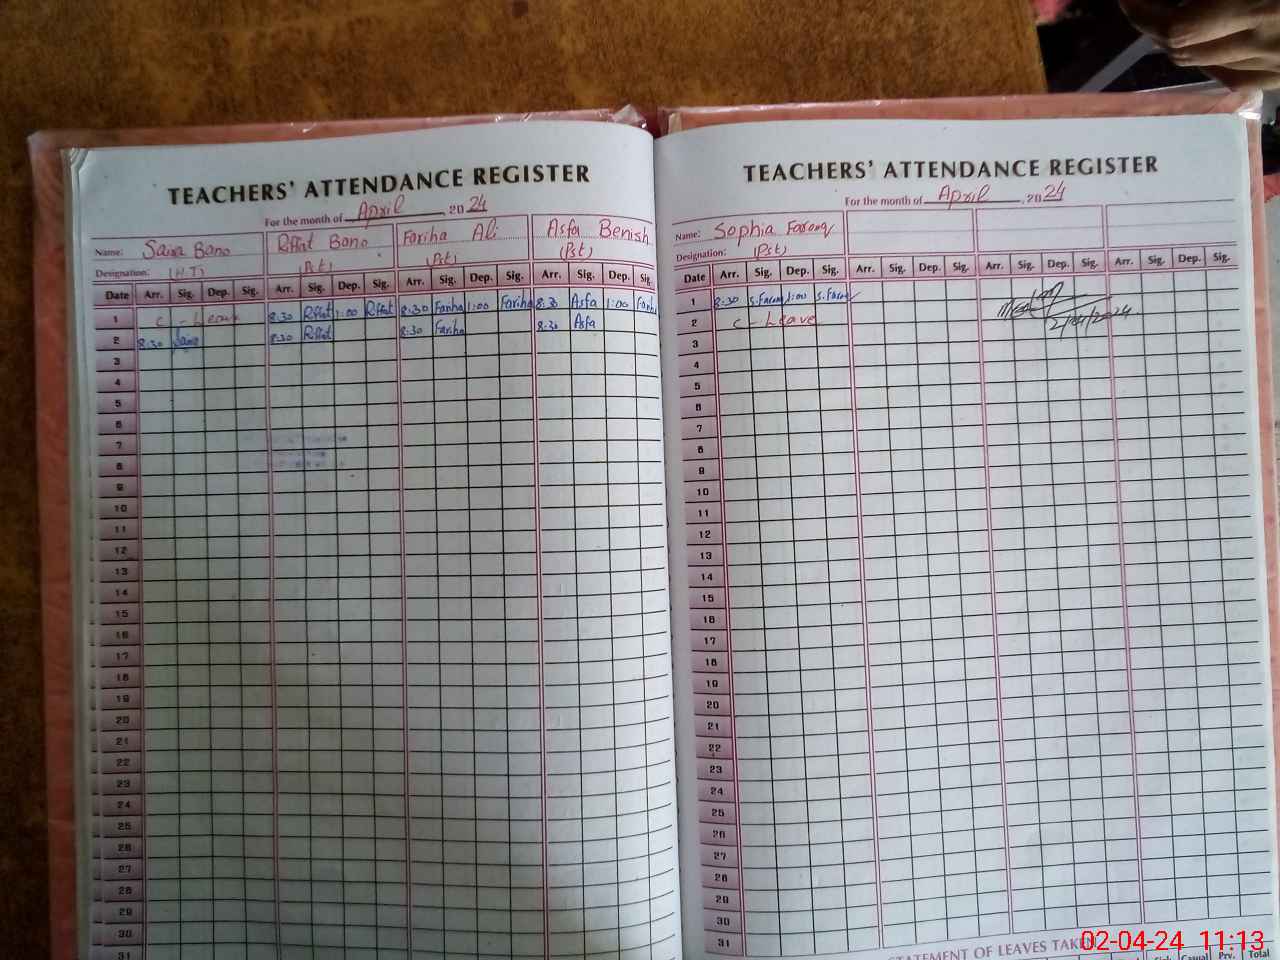 TEACHERS' ATTENDANCE REGISTER
For the month of April, 2024
Name: Saira Bano Riffat Bano Fariha Ali Asfa Benish
Designation: (H.T) (Pst) (Pst) (Pst)
Date Arr. Sig. Dep. Sig. Arr. Sig. Dep. Sig. Arr. Sig. Dep. Sig. Arr. Sig. Dep. Sig.
1 C - Leave 8:30 Riffat 1:00 Riffat 8:30 Fariha 1:00 Fariha 8:30 Asfa 1:00
2 8:30 8:30 Riffat 8:30 Fariha 8:30 Asfa
3
4
5
6
7
8
9
10
11
12
13
14
15
16
17
18
19
20
21
22
23
24
25
26
27
28
29
30
31
TEACHERS' ATTENDANCE REGISTER
For the month of April, 2024
Name: Sophia Farooq
Designation: (Pst)
Date Arr. Sig. Dep. Sig. Arr. Sig. Dep. Sig. Arr. Sig. Dep. Sig. Arr. Sig. Dep. Sig.
1 8:30 S.Farooq 1:00 S.Farooq
2 C - Leave 2/04/2024
3
4
5
6
7
8
9
10
11
12
13
14
15
16
17
18
19
20
21
22
23
24
25
26
27
28
29
30
31
STATEMENT OF LEAVES TAKEN
Sick Casual Prv. Total
02-04-24 11:13